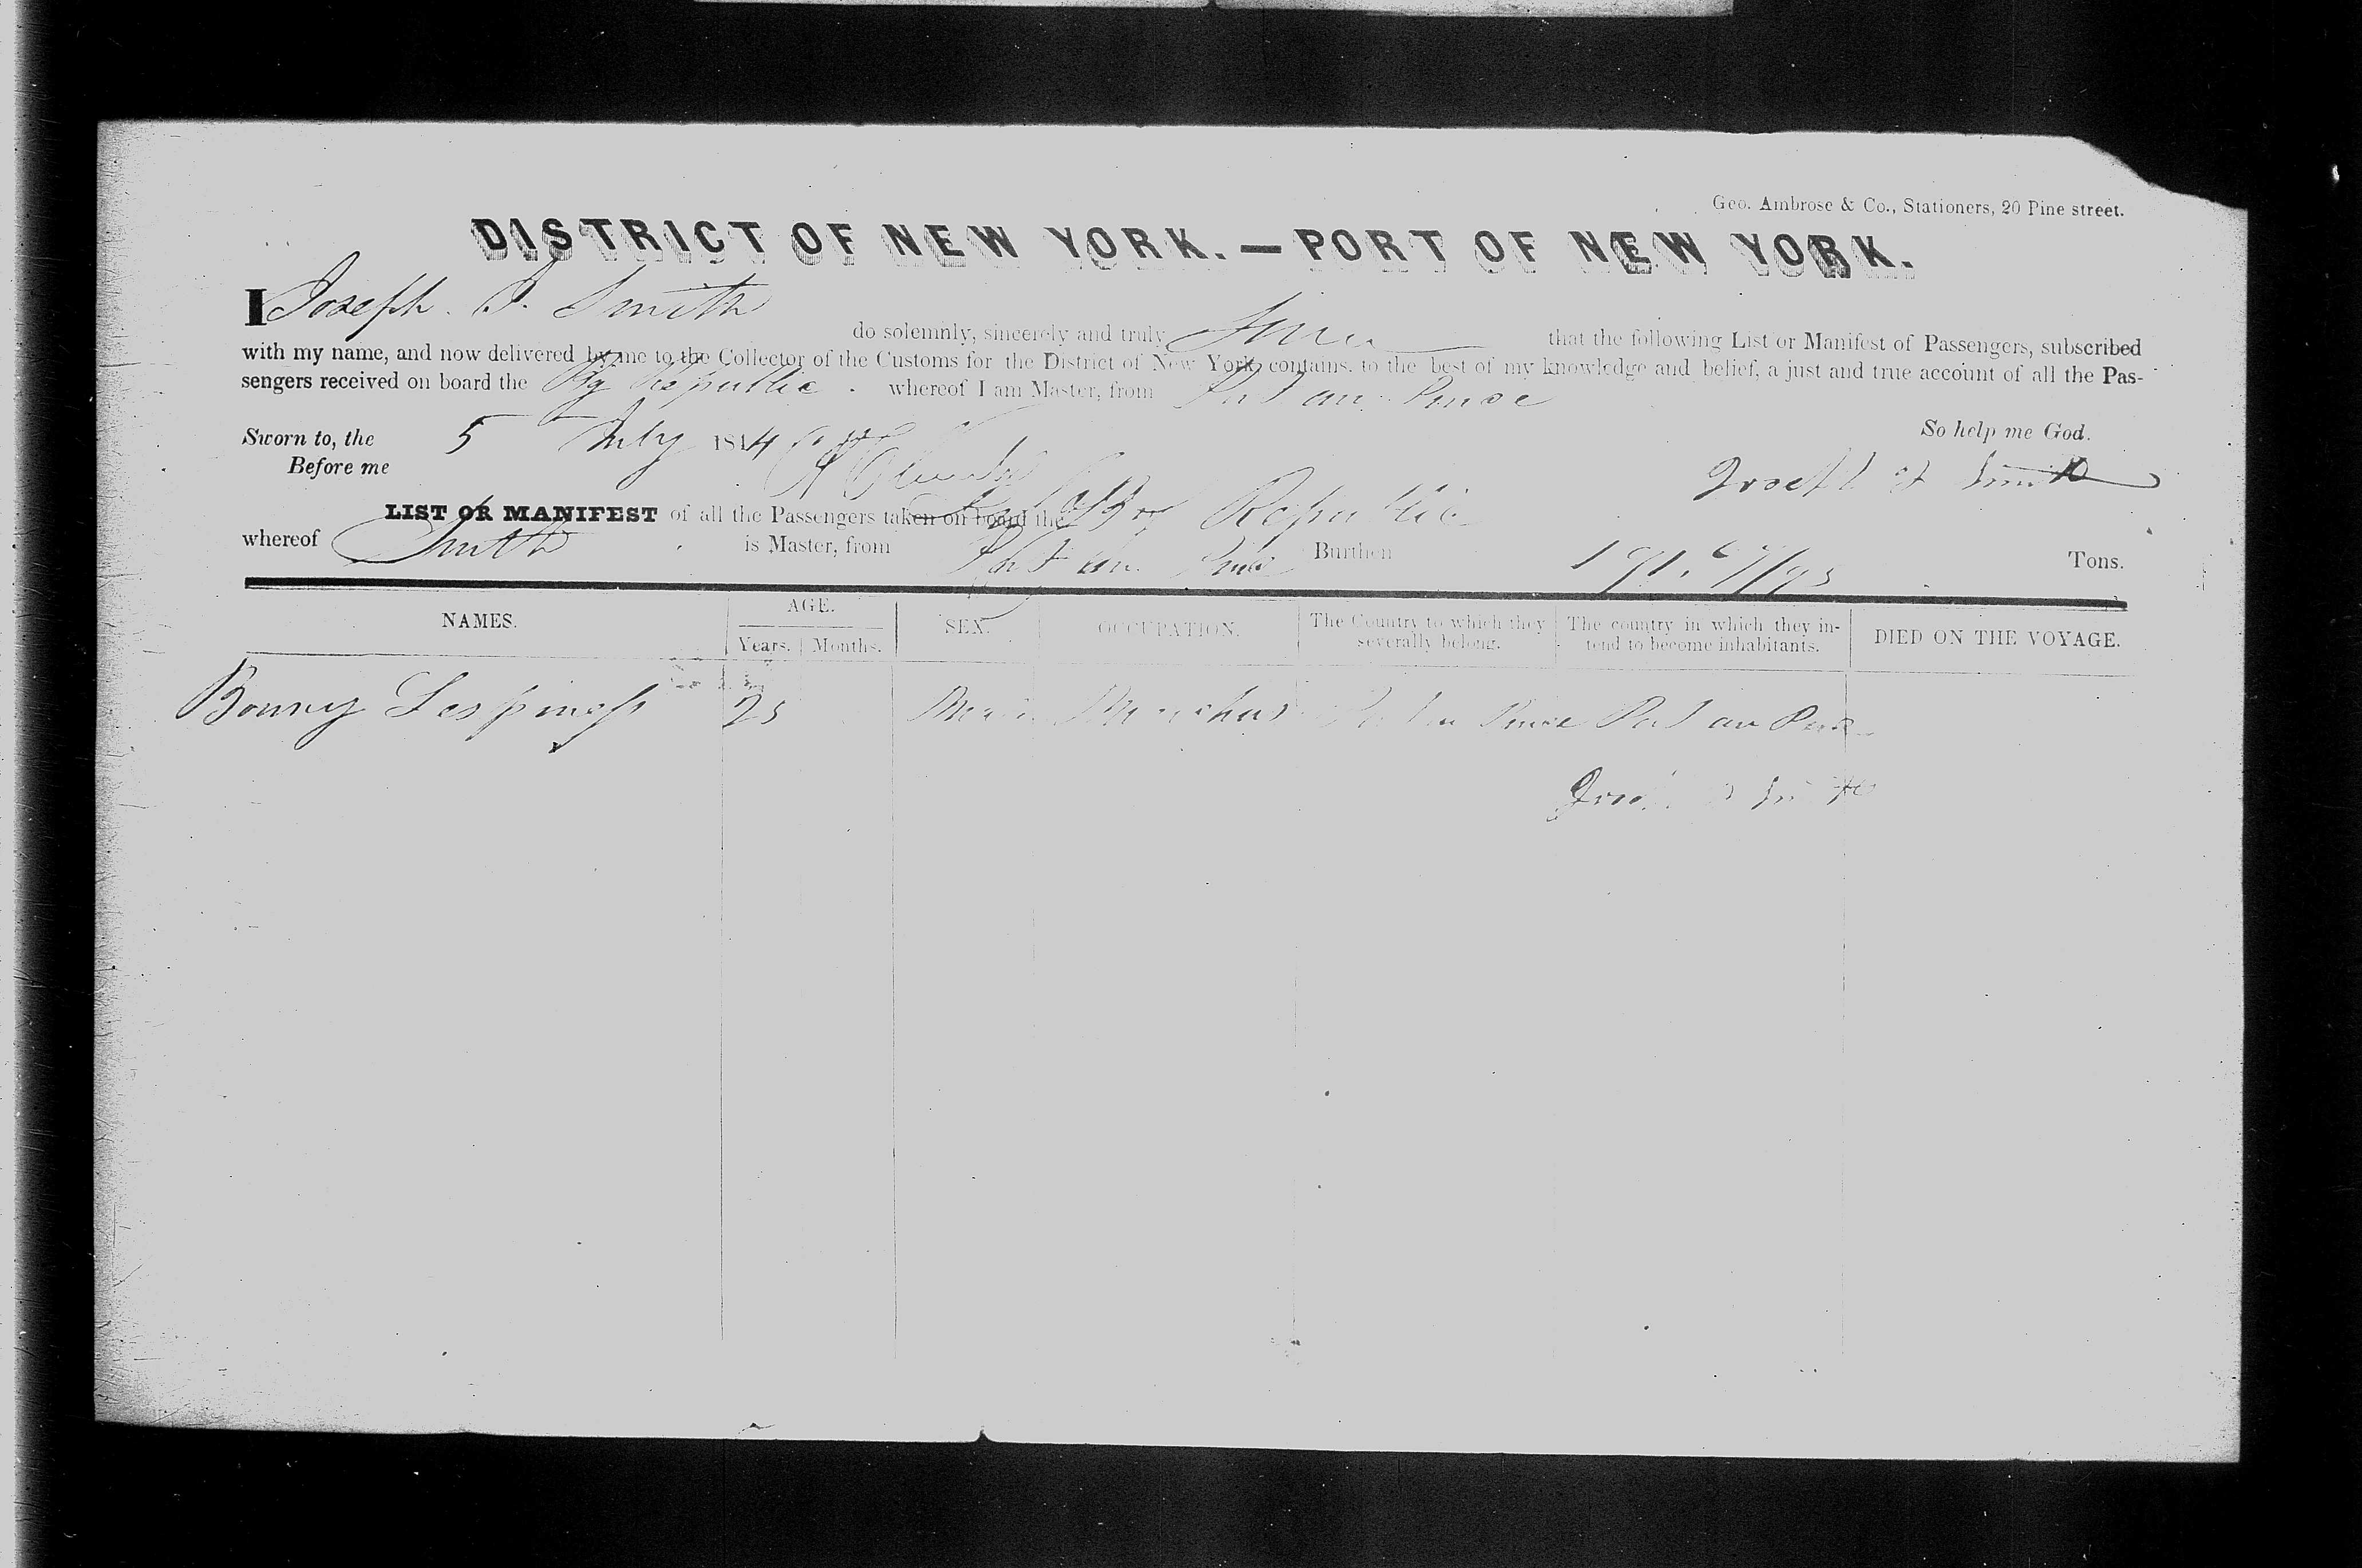 Geo. Ambrose & Co., Stationers, 20 Pine street.
DISTRICT OF NEW YORK. — PORT OF NEW YORK.
I Joseph Smith do solemnly, sincerely and truly that the following List or Manifest of Passengers, subscribed
with my name, and now delivered by me to the Collector of the Customs for the District of New York, contains, to the best of my knowledge and belief, a just and true account of all the Pas-
sengers received on board the Brig Republic whereof I am Master, from Port au Prince
So help me God.
Sworn to, the 5 July 1844
Before me
Joseph Smith
LIST OR MANIFEST of all the Passengers taken on board the Brig Republic
whereof Smith is Master, from Port au Prince Burthen Tons.
NAMES. AGE. Years. Months. SEX. OCCUPATION. The Country to which they severally belong. The country in which they in-tend to become inhabitants. DIED ON THE VOYAGE.
Bonny Lespinass 25 Male Merchant Port au Prince Port au Prince
Smith